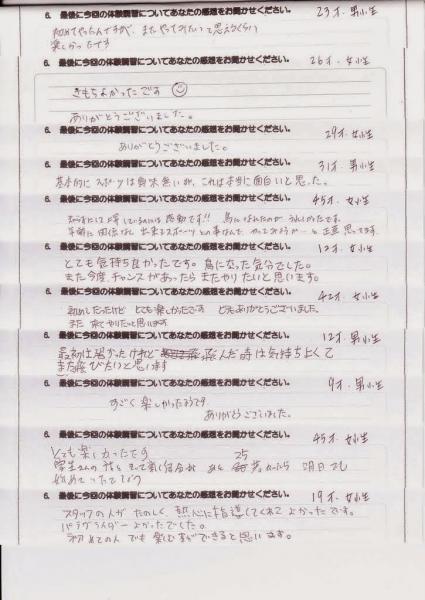 6. 最後に今回の体験講習についてあなたの感想をお聞かせください。 23才. 男小生
初めてやったんですが、またやってみたいと思えるくらい
楽しかったです
6. 最後に今回の体験講習についてあなたの感想をお聞かせください。 26才. 女小生
きもちよかったです
ありがとうございました。
6. 最後に今回の体験講習についてあなたの感想をお聞かせください。 29才. 女小生
ありがとうございました。
6. 最後に今回の体験講習についてあなたの感想をお聞かせください。 31才. 男小生
基本的にスポーツは興味無いが、これは本当に面白いと思った。
6. 最後に今回の体験講習についてあなたの感想をお聞かせください。 45才. 女小生
感動です!! 鳥になれたのが うれしかったです。
年齢に関係なし 出来るスポーツ
6. 最後に今回の体験講習についてあなたの感想をお聞かせください。 12才. 女小生
とても気持ち良かったです。鳥になった気分でした。
また今度、チャンスがあったらまたやりたいと思います。
6. 最後に今回の体験講習についてあなたの感想をお聞かせください。 42才. 女小生
初めてだったけど とても楽しかったです どうもありがとうございました。
また 来て やりたいと思います
6. 最後に今回の体験講習についてあなたの感想をお聞かせください。 12才. 男小生
最初は怖かったけれど 飛んだ時は気持ちよくて
また飛びたいと思います
6. 最後に今回の体験講習についてあなたの感想をお聞かせください。 9才. 男小生
すごく楽しかったようです。
ありがとうございました。
6. 最後に今回の体験講習についてあなたの感想をお聞かせください。 45才. 女小生
とても楽しかったです
25
明日でも
始めて
6. 最後に今回の体験講習についてあなたの感想をお聞かせください。 19才. 女小生
スタッフの人が たのしく 熱心に指導してくれて よかったです。
パラグライダー よかったでした。
初めての人 でも 楽しむ事ができると思います。